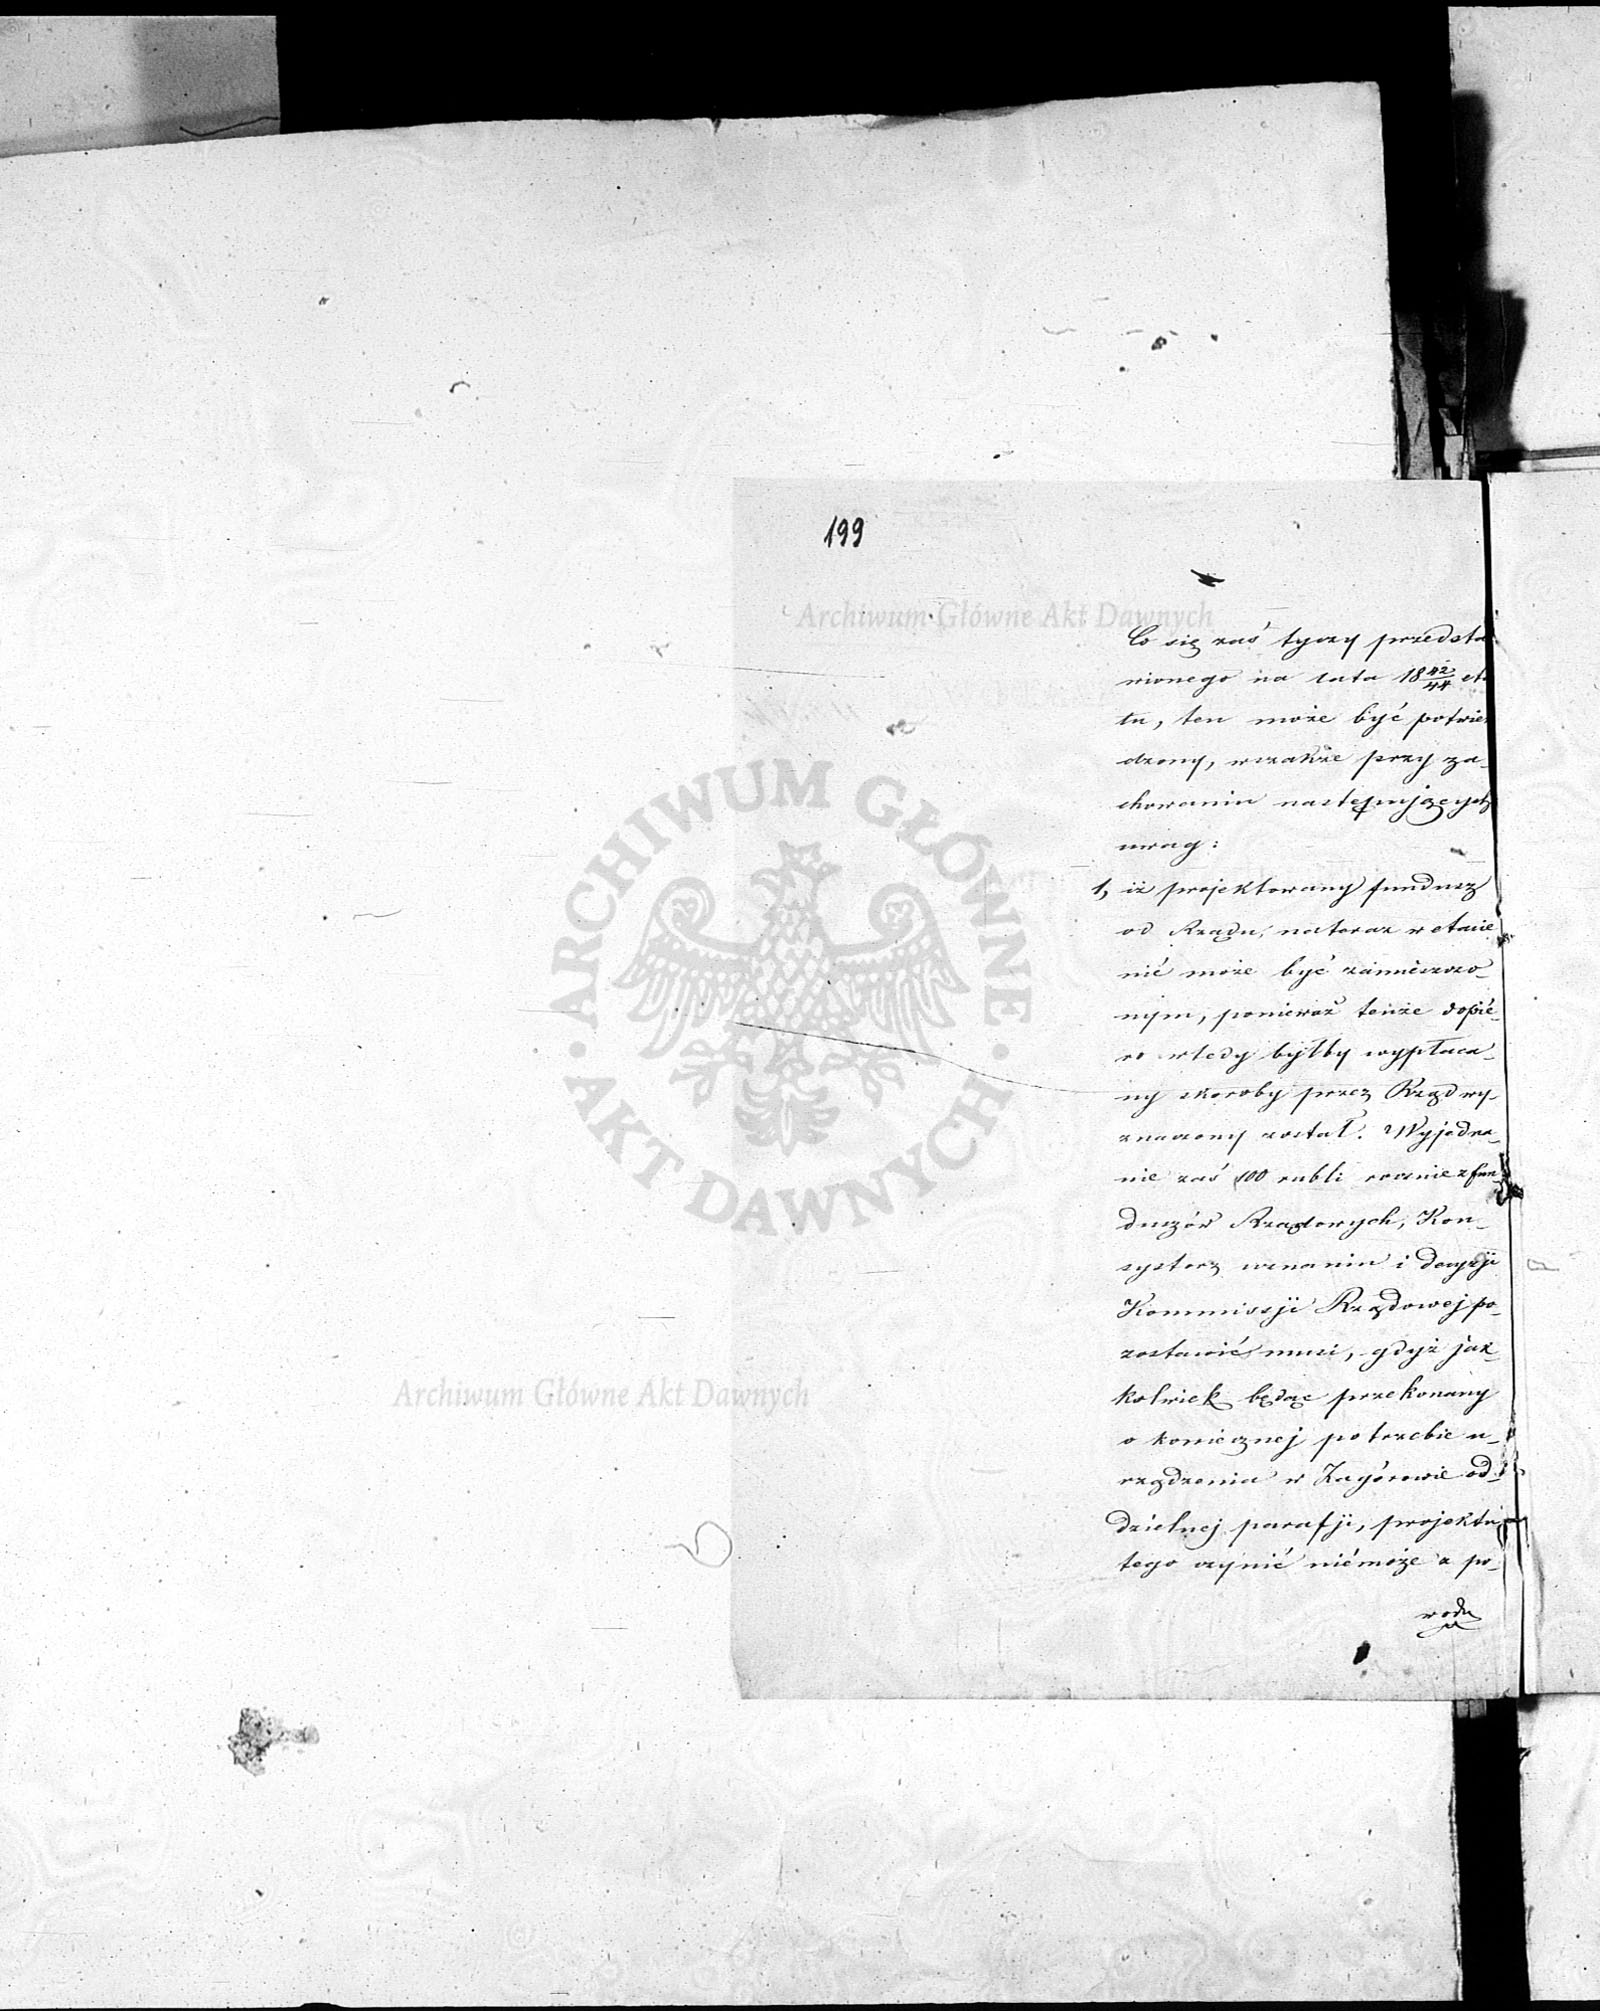 199
Archiwum Główne Akt Dawnych
Co się zaś tyczy przedsta
wionego na lata 18 42/44 eta
tu, ten może być potwier
dzony, wszakże przy za-
chowaniu następujących
uwag:
1, iż projektowany fundusz
od Rządu, na teraz w etacie
nié może być zamieszczo-
nym, ponieważ tenże dopié-
ro wtedy byłby wypłaca-
ny skoroby przez Rząd wy-
znaczony został. Wyjedna-
nie zaś 100 rubli rocznie z fun-
duszów Rządowych, Kon-
systorz uznaniu i decyzji
Kommissji Rządowej po-
zostawić musi, gdyż jak-
kolwiek będąc przekonany
o koniecznej potrzebie u-
rządzenia w Zagórowie od-
dzielnej parafji, projektu
tego czynić niémoże z po-
wodu
ARCHIWUM GŁÓWNE
AKT DAWNYCH
Archiwum Główne Akt Dawnych